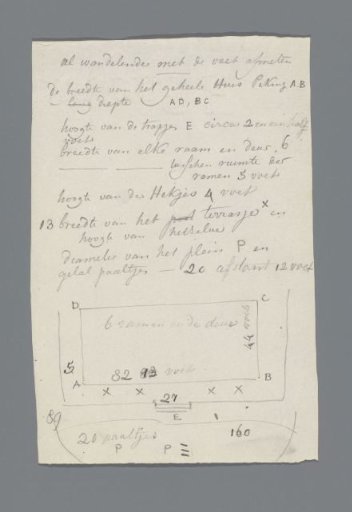 al wandelende met de voet afmeten
de breedte van het geheele Huis Peking AB
— lang diepte AD, BC
hoogte van de trapjes E circa 2 en een half
voets
breedte van elke raam en deur, 6
tusschen ruimte der
ramen 3 voets
hoogte van der Hekjes 4 voet
13 breedte van het terrasje x en
hoogte van hetzelve
diameter van het plein P en
getal paaltjes — 20 afstant 12 voet
D C
6 ramen en de deur
44 voets
5
A 82 voet B
x x x x
27
E
89 160
20 paaltjes
P P